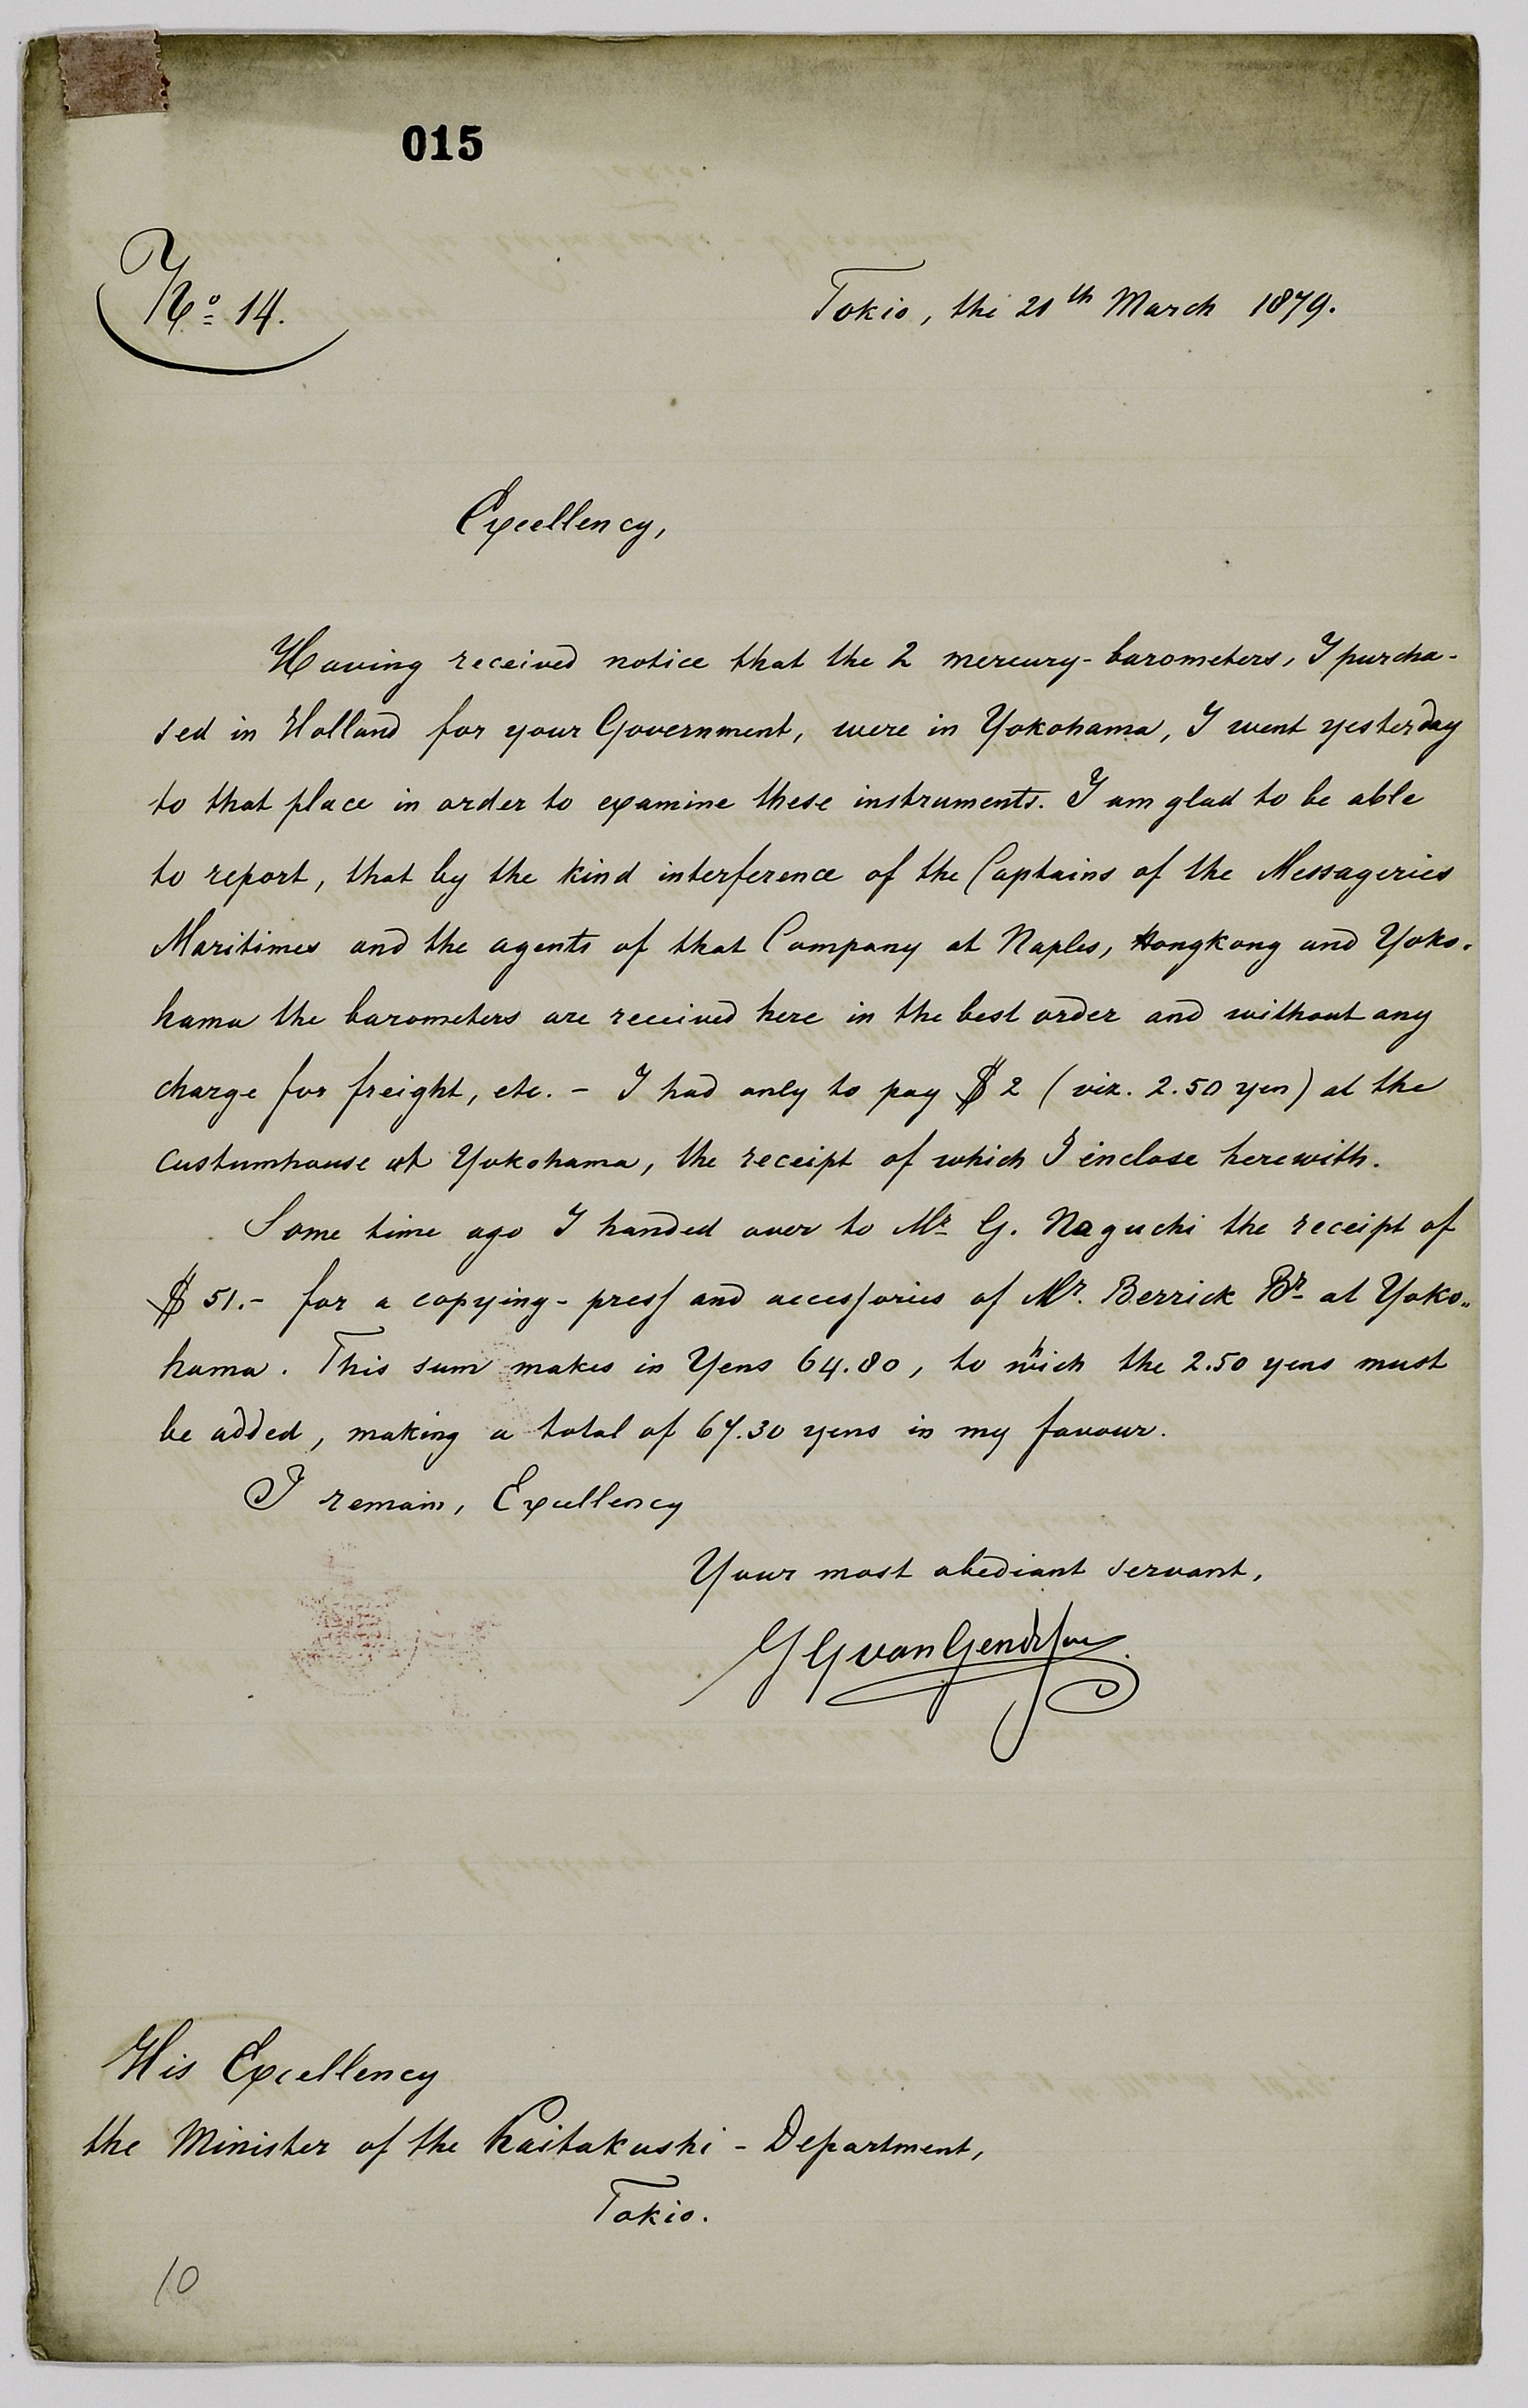 015
No 14.
Tokio, the 21th March 1879.
Excellency,
Having received notice that the 2 mercury-barometers, I purcha-
sed in Holland for your Government, were in Yokohama, I went yesterday
to that place in order to examine these instruments. I am glad to be able
to report, that by the kind interference of the Captains of the Messageries
Maritimes and the agents of that Company at Naples, Hongkong and Yoko-
hama the barometers are received here in the best order and without any
charge for freight, etc. - I had only to pay $ 2 (viz. 2.50 yen) at the
custumhouse at Yokohama, the receipt of which I inclose herewith.
Some time ago I handed over to Mr G. Naguchi the receipt of
$ 51.- for a copying-press and accessories of Mr. Berrick Br at Yoko-
hama. This sum makes in Yens 64.80, to which the 2.50 yens must
be added, making a total of 67.30 yens in my favour.
I remain, Excellency
Your most obediant servant,
J G van Gendt Jun
His Excellency
the Minister of the Kaitakushi-Department,
Tokio.
10